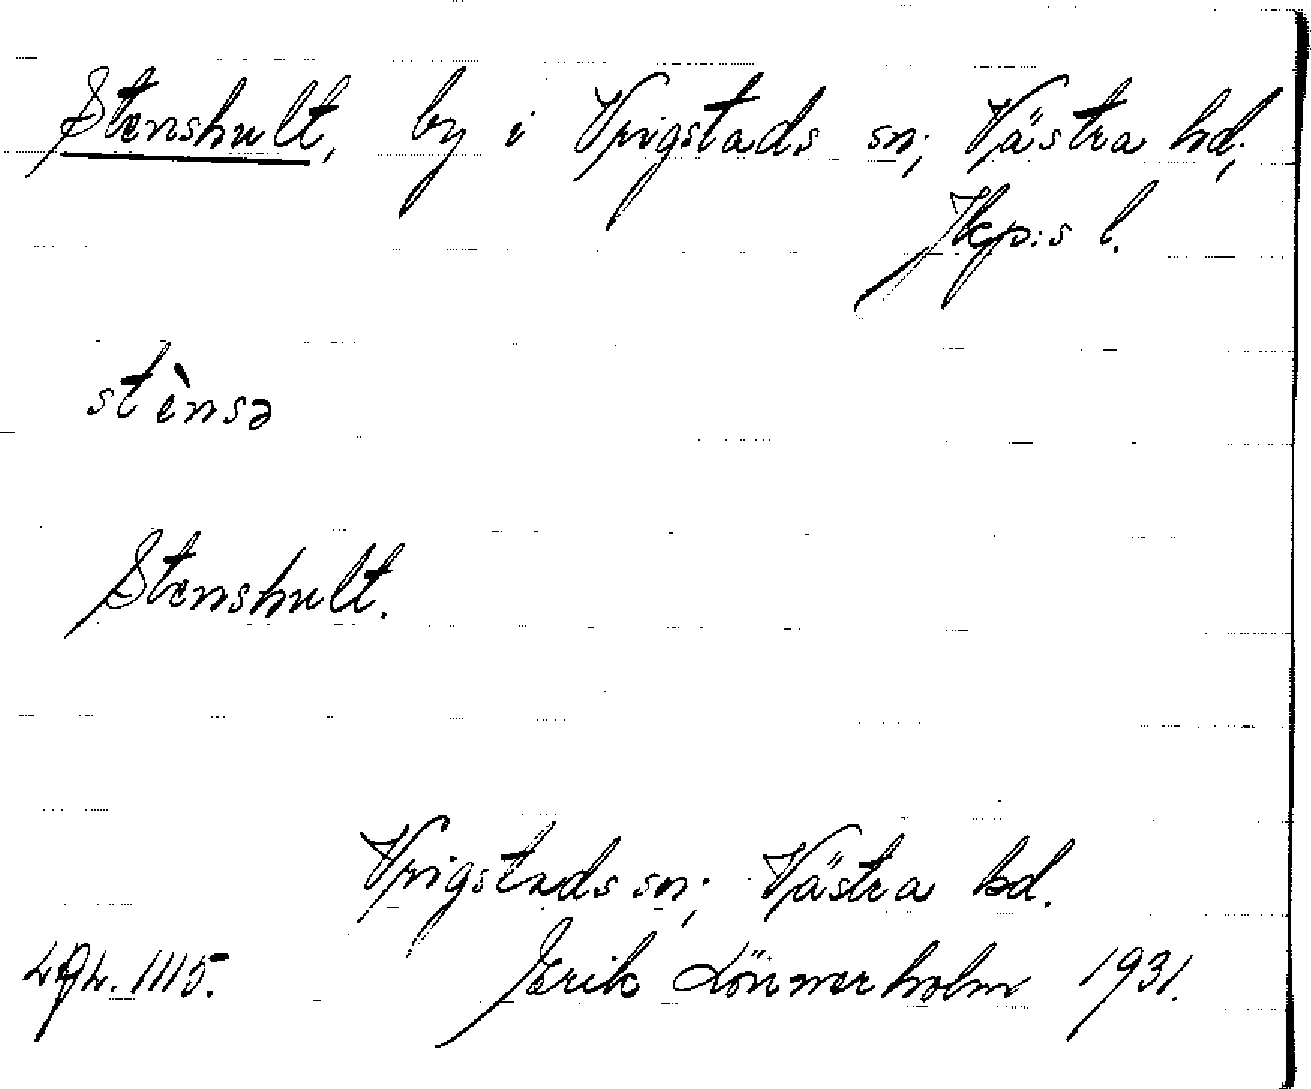 Stenshult, by i Vrigstads sn; Västra hd;
Jkp:s l.
stènsə
Stenshult.
Vrigstads sn; Västra hd.
Lgh. 1115. Erik Lönnerholm 1931.